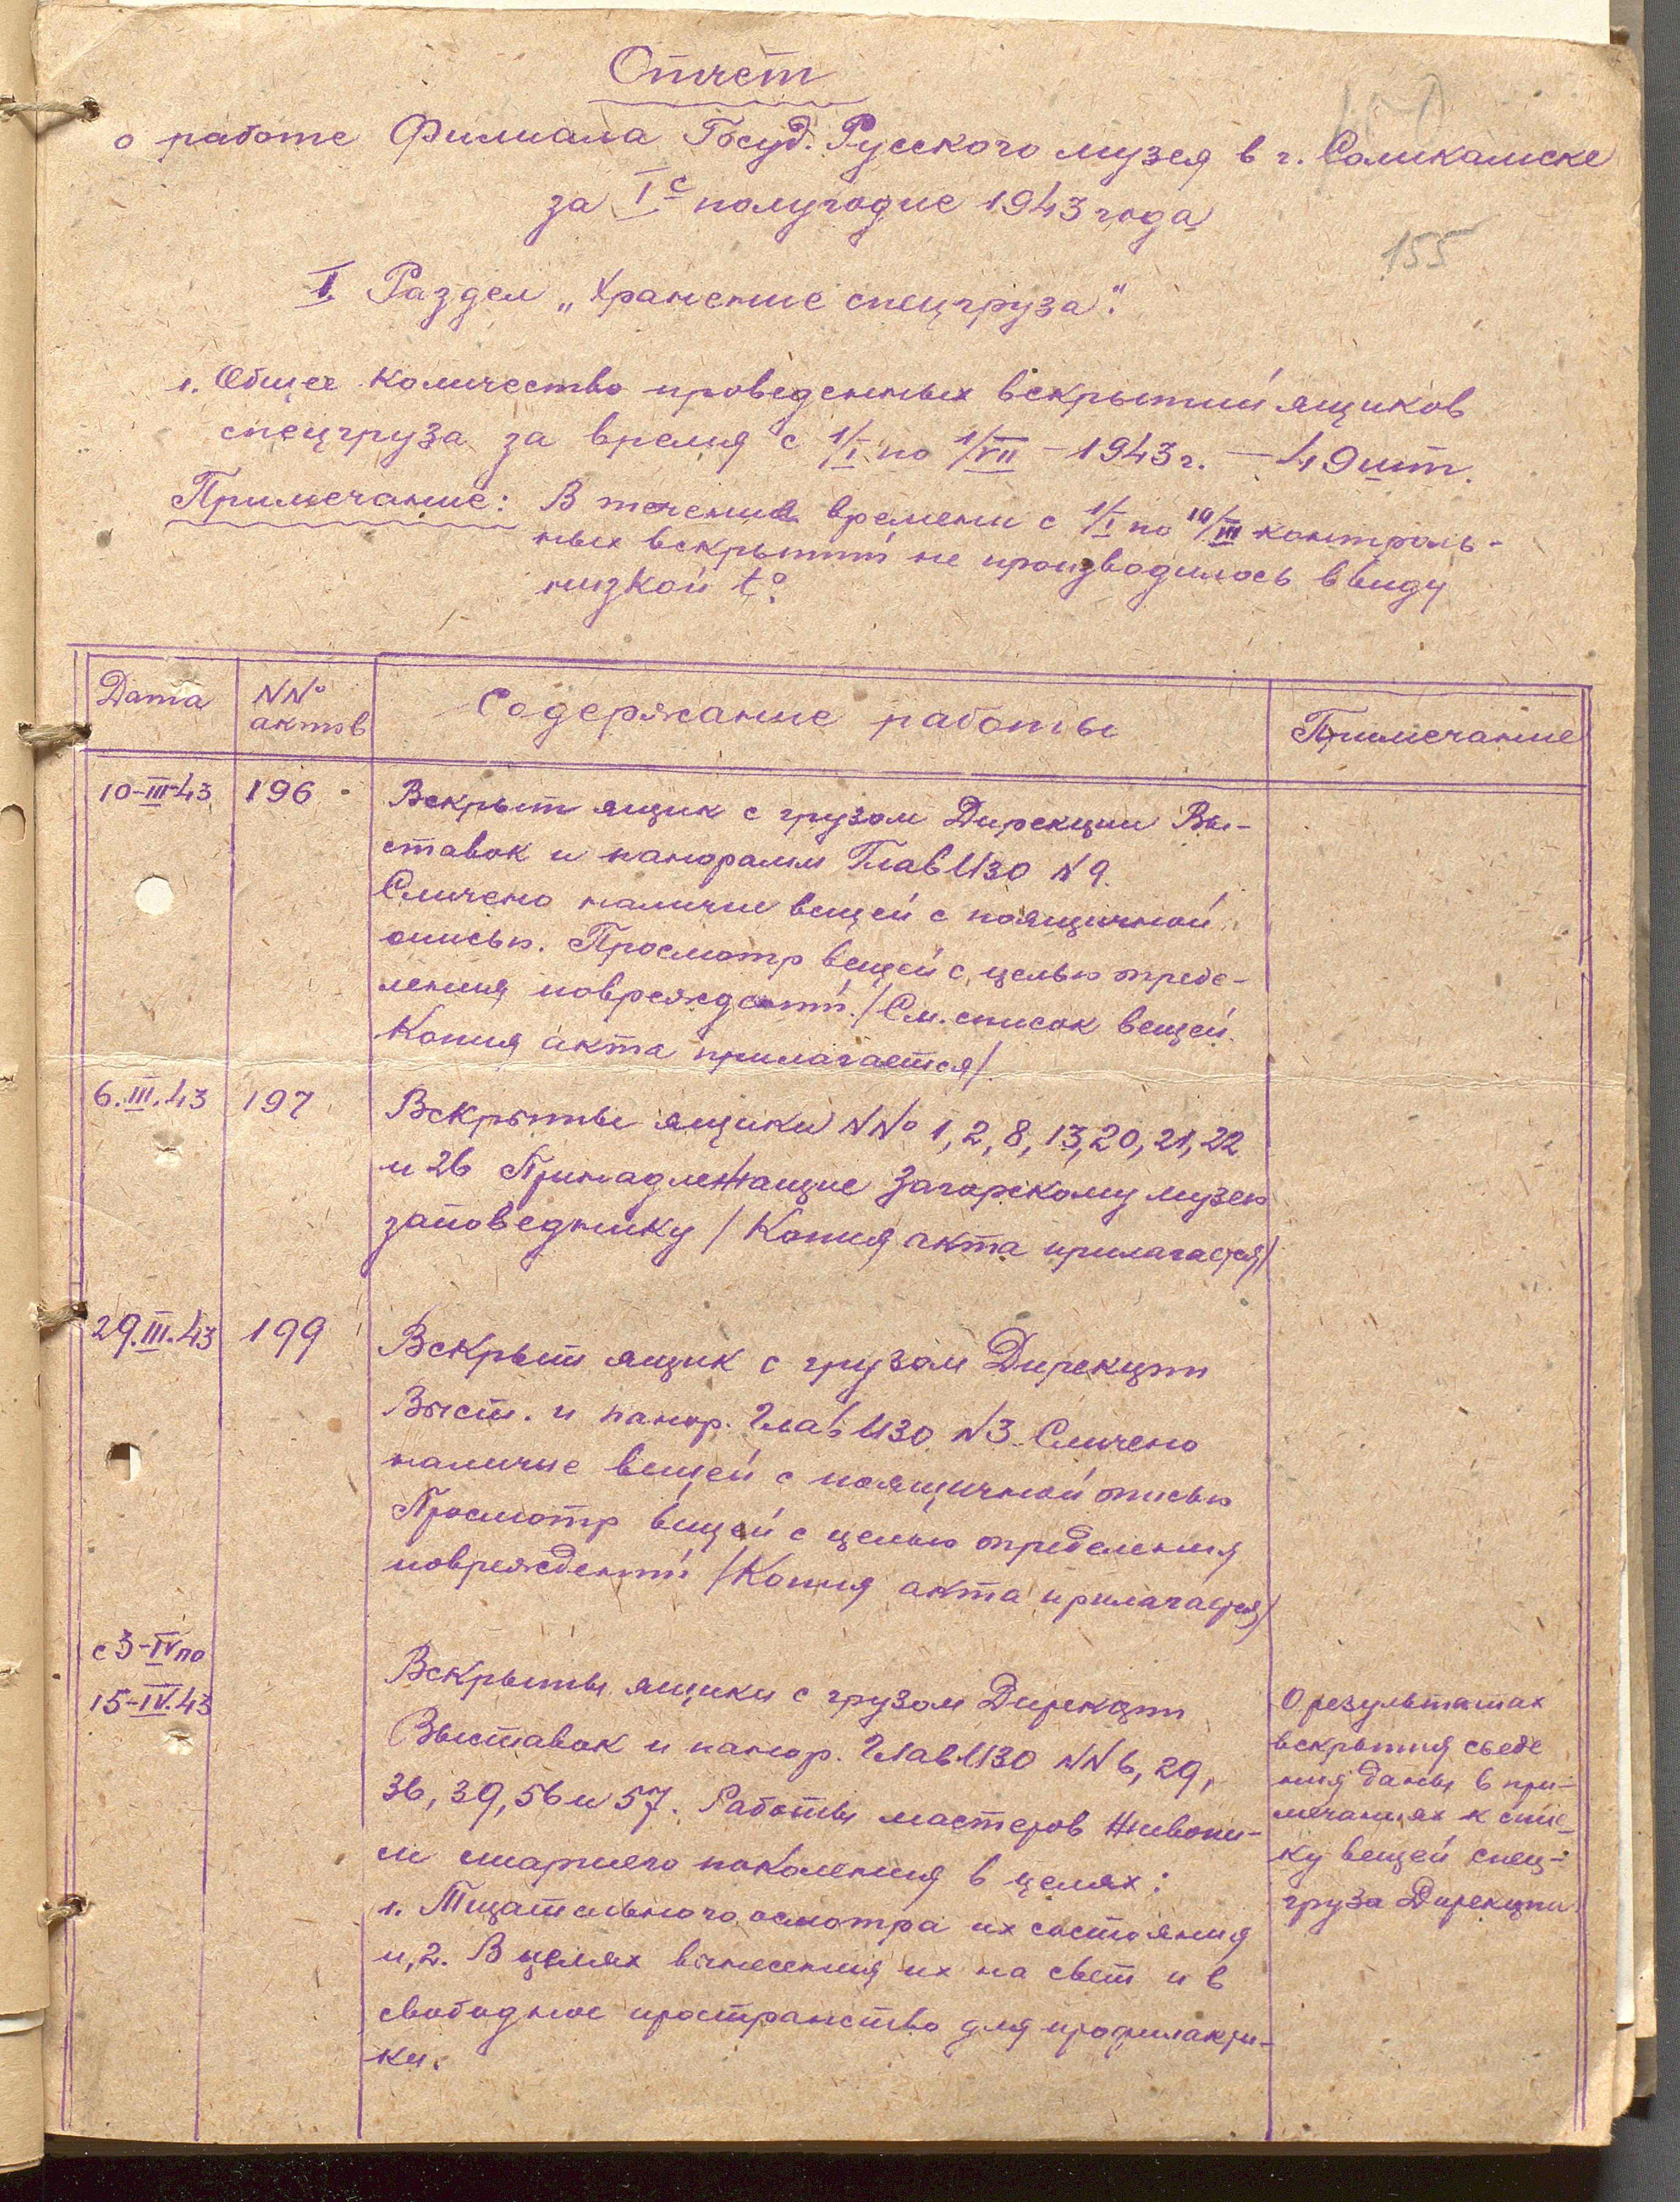 Отчет
о работе Филиала Госуд. Русского музея в г. Соликамске
за I-е полугодие 1943 года
155
I Раздел „Хранение спецгруза".
1. Общее количество проведенных вскрытий ящиков
спецгруза за время с 1/I по 1/VII – 1943 г. – 49 шт.
Примечание: В течении времени с 1/I по 10/III контроль-
ных вскрытий не производилось ввиду
низкой t°.
Дата
NN° актов
Содержание работы
Примечание
10-III-43 196
Вскрыт ящик с грузом Дирекции Вы-
ставок и панорамм ГлавИЗО N 9.
Сличено наличие вещей с поящичной
описью. Просмотр вещей с целью опреде-
ления повреждений. /См. список вещей.
Копия акта прилагается/.
6.III.43 197
Вскрыты ящики NN° 1, 2, 8, 13, 20, 21, 22
и 26 Принадлежащие Загорскому музею
заповеднику /Копия акта прилагается/
29.III.43 199
Вскрыт ящик с грузом Дирекции
Выст. и панор. ГлавИЗО N3. Сличено
наличие вещей с поящичной описью
Просмотр вещей с целью определения
повреждений /Копия акта прилагается/
с 3-IV по
15-IV.43
Вскрыты ящики с грузом Дирекции
Выставок и панор. ГлавИЗО NN 6, 29,
36, 39, 56 и 57. Работы мастеров живопи-
си старшего поколения в целях:
1. Тщательного осмотра их состояния
и, 2. В целях вынесения их на свет и в
свободное пространство для профилакти-
ки.
О результатах
вскрытия сведе
ния даны в при-
мечаниях к спис-
ку вещей спец-
груза Дирекции